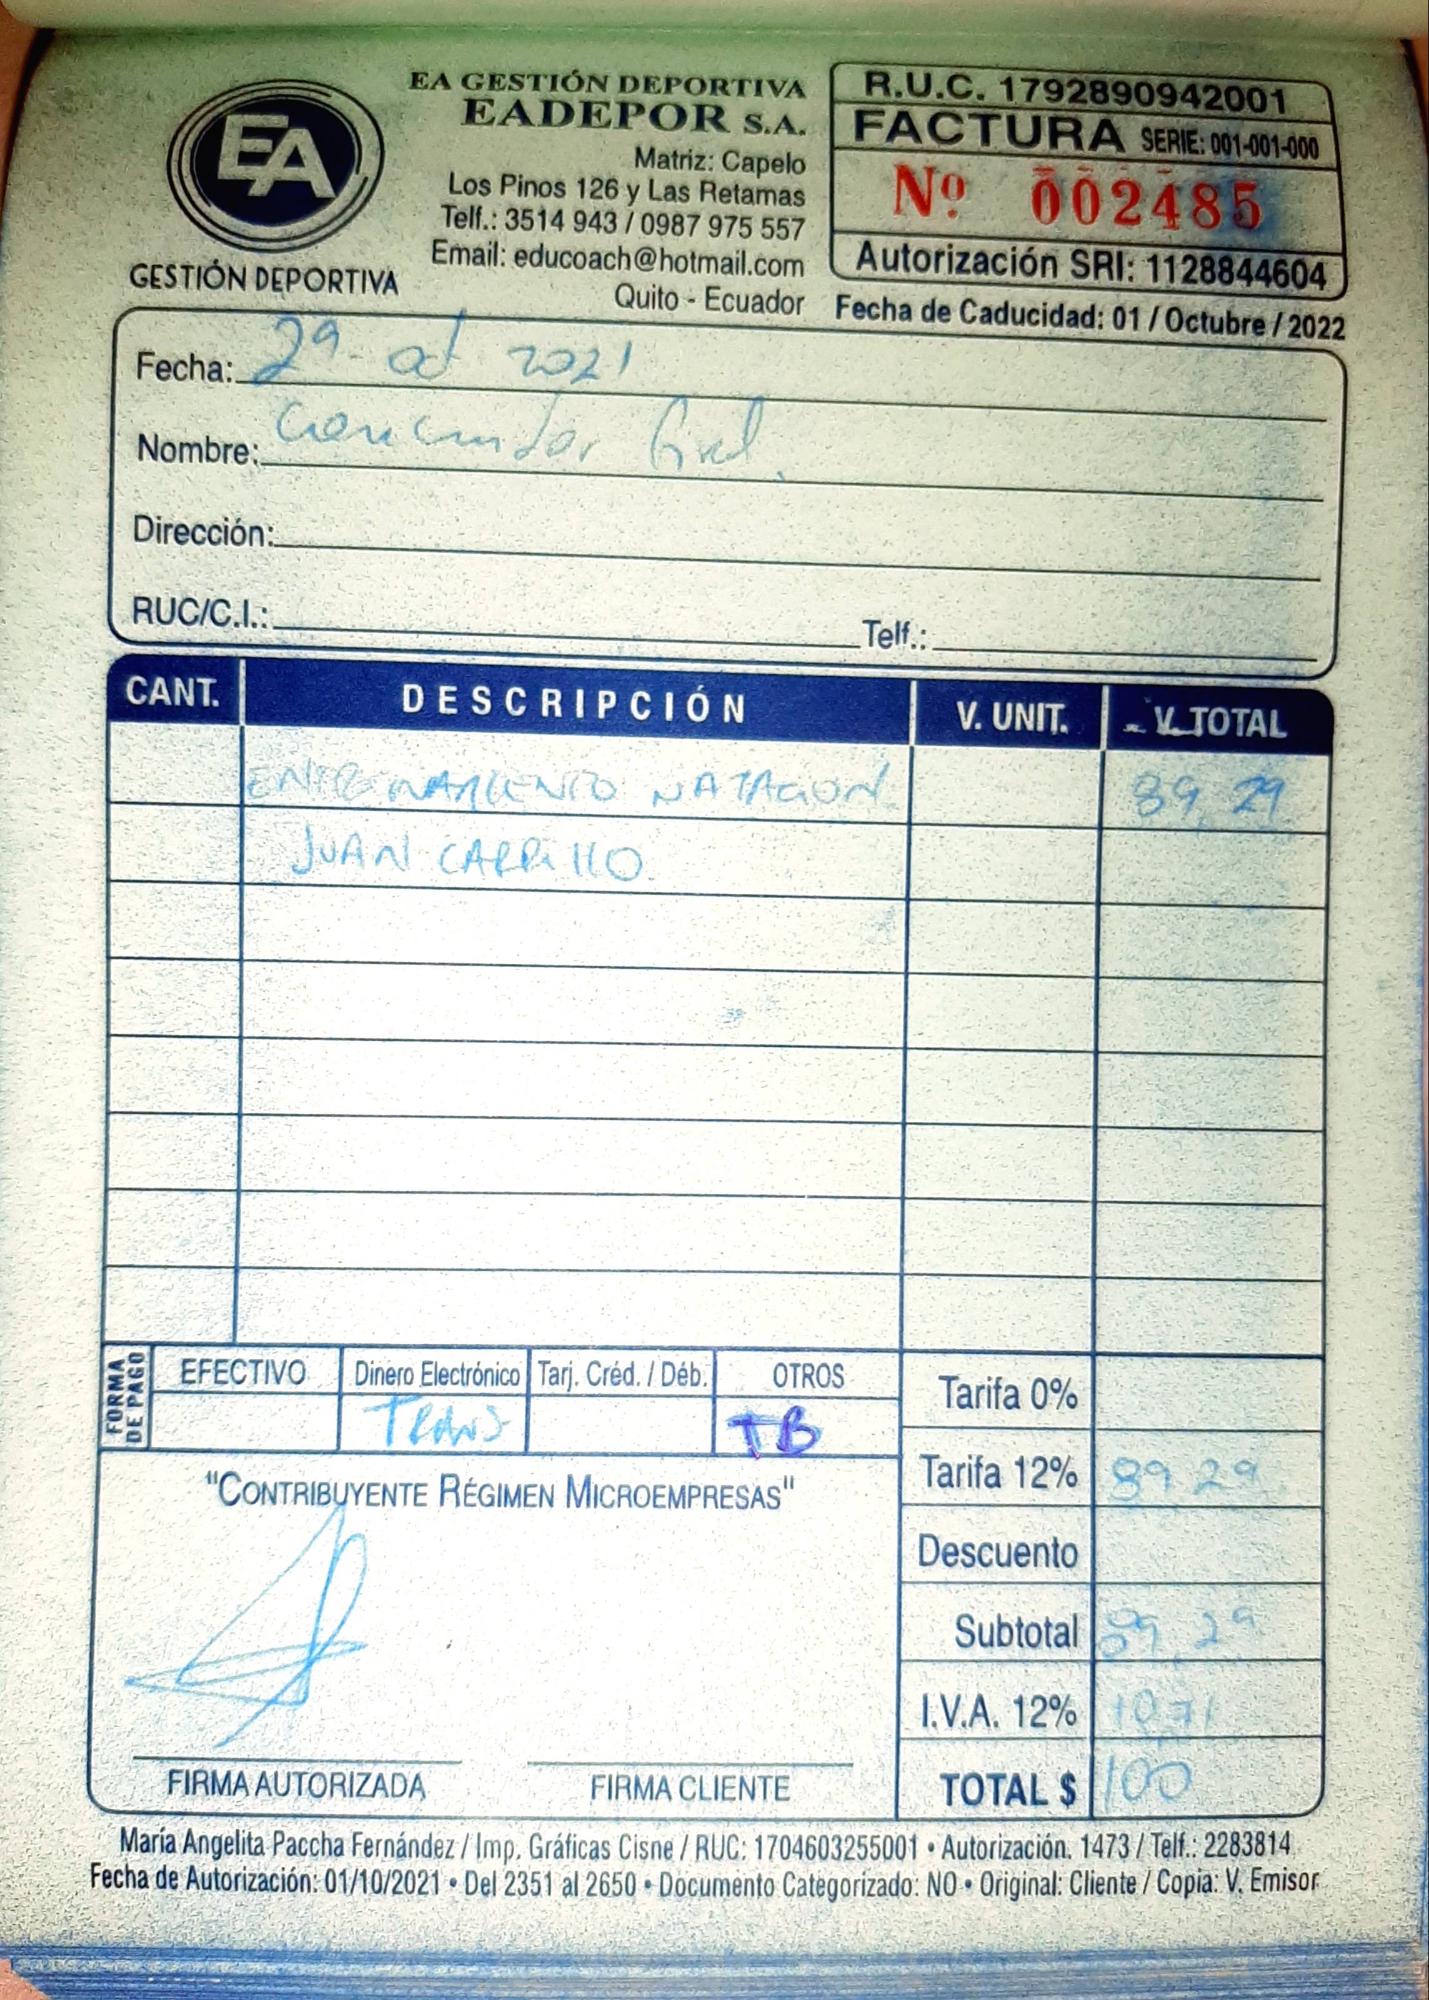 EA
GESTIÓN DEPORTIVA
EA GESTIÓN DEPORTIVA
EADEPOR S.A.
Matriz: Capelo
Los Pinos 126 y Las Retamas
Telf.: 3514 943 / 0987 975 557
Email: educoach@hotmail.com
Quito - Ecuador
R.U.C. 1792890942001
FACTURA SERIE: 001-001-000
Nº 002485
Autorización SRI: 1128844604
Fecha de Caducidad: 01 / Octubre / 2022
Fecha: 29 - oct 2021
Nombre: Consumidor final.
Dirección:
RUC/C.I.: Telf.:
CANT. DESCRIPCIÓN V. UNIT. V. TOTAL
ENTRENAMIENTO NATACION 89,29
JUAN CARRILLO.
FORMA DE PAGO
EFECTIVO Dinero Electrónico Tarj. Créd. / Déb. OTROS
TRANS TB
Tarifa 0%
Tarifa 12% 89,29
Descuento
Subtotal 89,29
I.V.A. 12% 10,71
TOTAL $ 100
"CONTRIBUYENTE RÉGIMEN MICROEMPRESAS"
FIRMA AUTORIZADA FIRMA CLIENTE
María Angelita Paccha Fernández / Imp. Gráficas Cisne / RUC: 1704603255001 • Autorización. 1473 / Telf.: 2283814
Fecha de Autorización: 01/10/2021 • Del 2351 al 2650 • Documento Categorizado: NO • Original: Cliente / Copia: V. Emisor